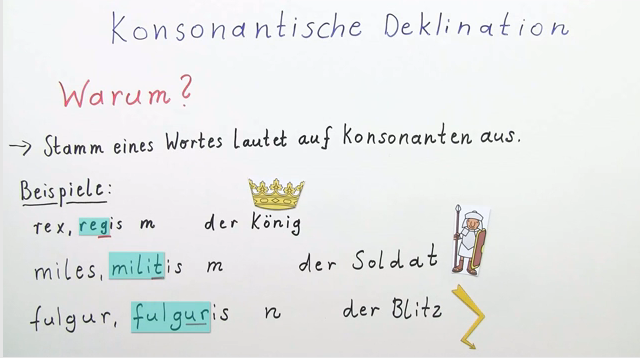 Konsonantische Deklination
Warum?
→ Stamm eines Wortes lautet auf Konsonanten aus.
Beispiele:
rex, regis m der König
miles, militis m der Soldat
fulgur, fulguris n der Blitz